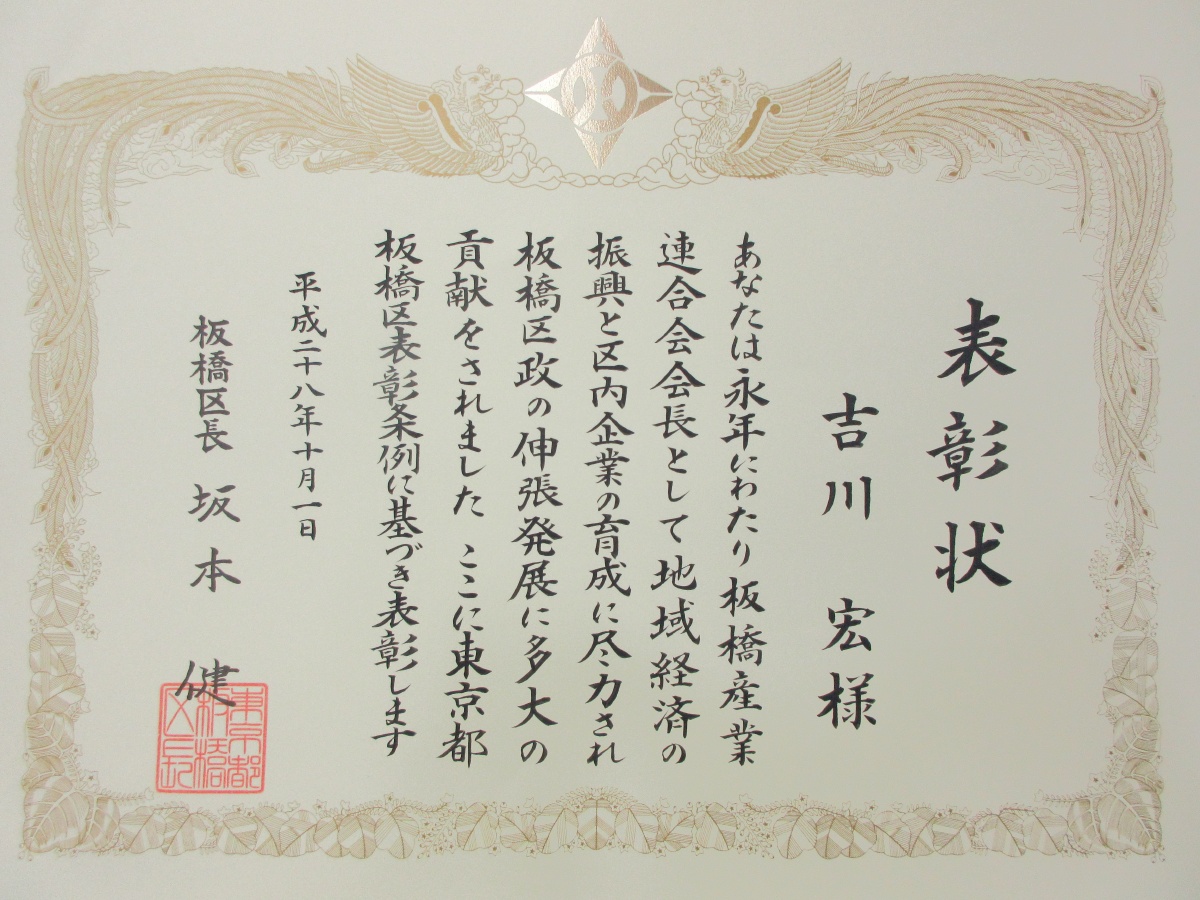 表彰状
吉川 宏様
あなたは永年にわたり板橋産業
連合会会長として地域経済の
振興と区内企業の育成に尽力され
板橋区政の伸張発展に多大の
貢献をされました ここに東京都
板橋区表彰条例に基づき表彰します
平成二十八年十月一日
板橋区長 坂本 健
東京都
板橋
区長